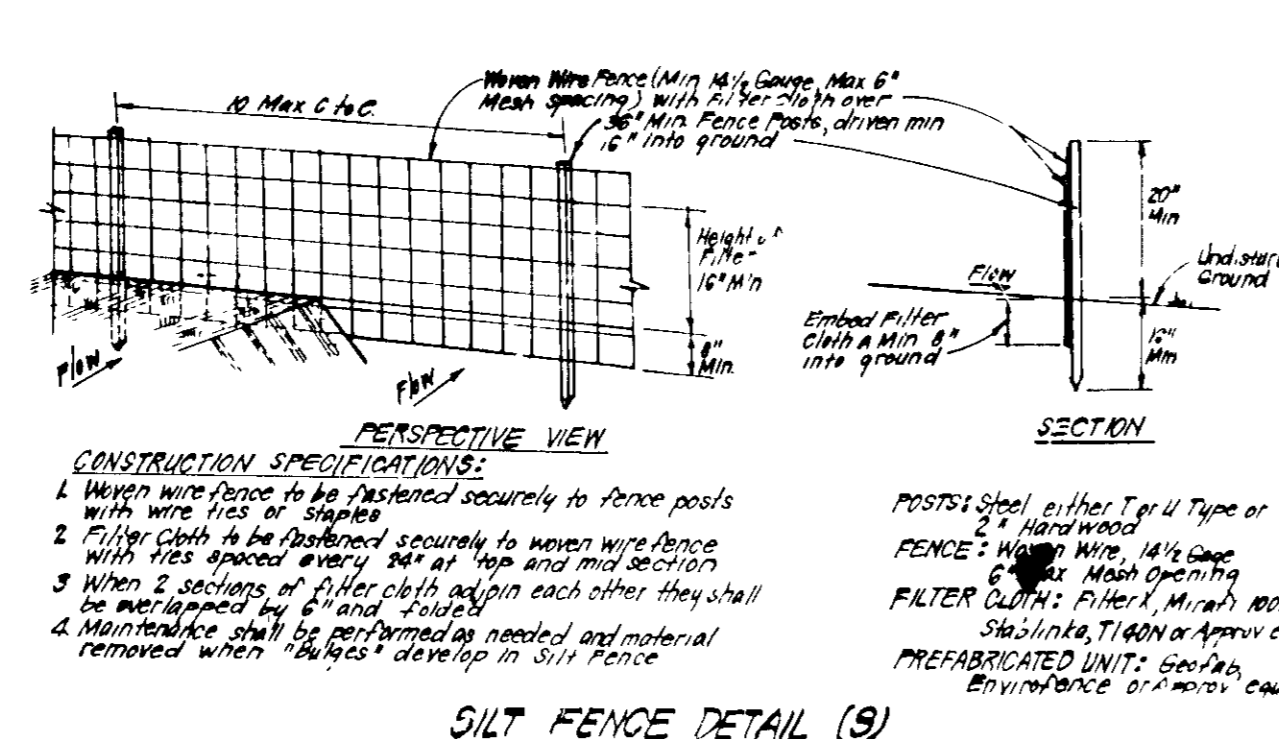 Woven Wire Fence (Min 14½ Gauge, Max 6"
Mesh spacing) with Filter Cloth over
10 Max C to C.
36" Min Fence Posts, driven min
16" into ground
Height of
Filter
16" Min
8"
Min.
Flow
Flow
20"
Min
Flow
Ground
Embed Filter
Cloth a Min 8"
into ground
16"
Min
PERSPECTIVE VIEW
SECTION
CONSTRUCTION SPECIFICATIONS:
1. Woven wire fence to be fastened securely to fence posts
with wire ties or staples
2 Filter Cloth to be fastened securely to woven wire fence
with ties spaced every 24" at top and mid section
3 When 2 sections of filter cloth adjoin each other they shall
be overlapped by 6" and folded
4. Maintenance shall be performed as needed and material
removed when "Bulges" develop in Silt Fence
POSTS: Steel either T or U Type or
2" Hardwood
FENCE: Woven Wire, 14½ Gage
6" Max Mesh Opening
FILTER CLOTH: Filter X, Mirafi 100
Stablinka, T140N or
PREFABRICATED UNIT: Geofab,
Envirofence or
SILT FENCE DETAIL (S)